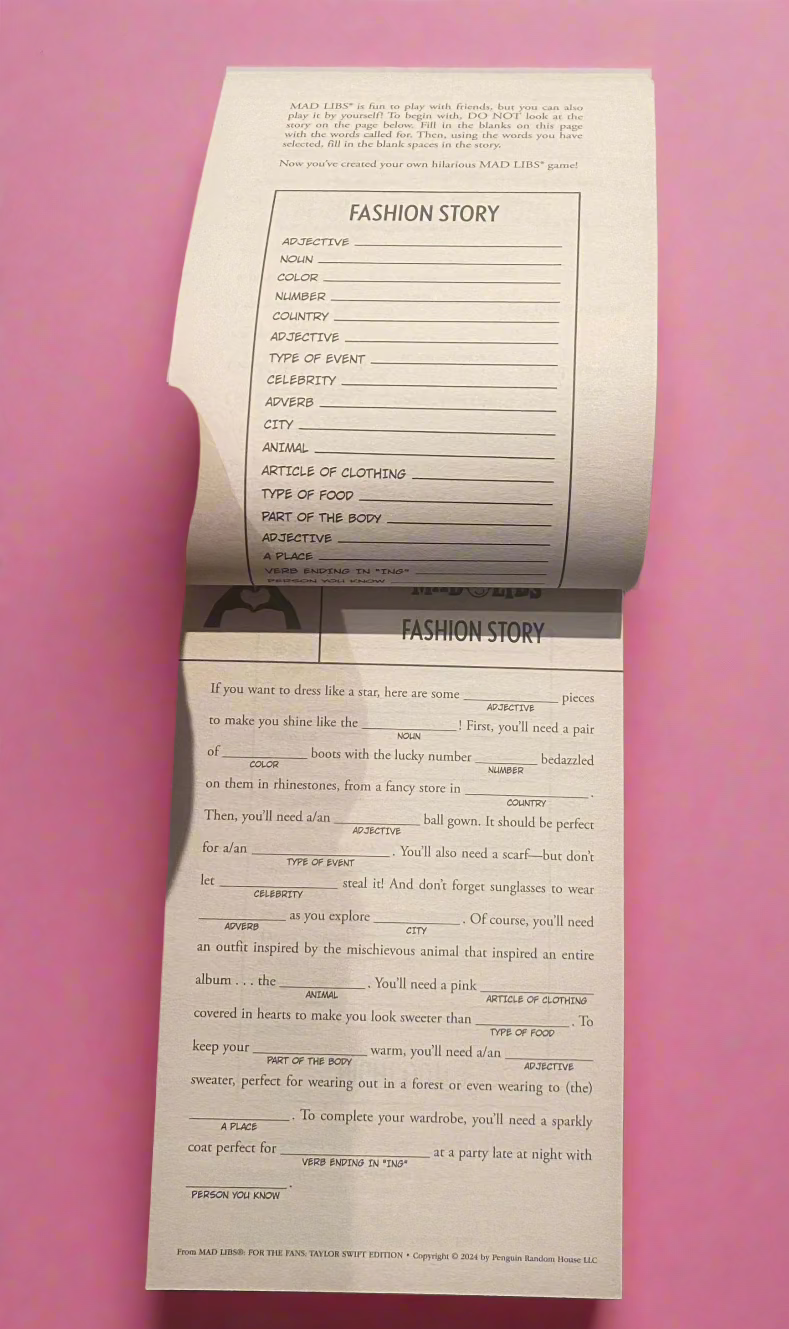 MAD LIBS® is fun to play with friends, but you can also
play it by yourself! To begin with, DO NOT look at the
story on the page below. Fill in the blanks on this page
with the words called for. Then, using the words you have
selected, fill in the blank spaces in the story.
Now you've created your own hilarious MAD LIBS® game!
FASHION STORY
ADJECTIVE
NOUN
COLOR
NUMBER
COUNTRY
ADJECTIVE
TYPE OF EVENT
CELEBRITY
ADVERB
CITY
ANIMAL
ARTICLE OF CLOTHING
TYPE OF FOOD
PART OF THE BODY
ADJECTIVE
A PLACE
VERB ENDING IN "ING"
PERSON YOU KNOW
MAD LIBS
FASHION STORY
If you want to dress like a star, here are some ____ pieces
ADJECTIVE
to make you shine like the ____! First, you'll need a pair
NOUN
of ____ boots with the lucky number ____ bedazzled
COLOR NUMBER
on them in rhinestones, from a fancy store in ____.
COUNTRY
Then, you'll need a/an ____ ball gown. It should be perfect
ADJECTIVE
for a/an ____. You'll also need a scarf—but don't
TYPE OF EVENT
let ____ steal it! And don't forget sunglasses to wear
CELEBRITY
____ as you explore ____. Of course, you'll need
ADVERB CITY
an outfit inspired by the mischievous animal that inspired an entire
album . . . the ____. You'll need a pink ____
ANIMAL ARTICLE OF CLOTHING
covered in hearts to make you look sweeter than ____. To
TYPE OF FOOD
keep your ____ warm, you'll need a/an ____
PART OF THE BODY ADJECTIVE
sweater, perfect for wearing out in a forest or even wearing to (the)
____. To complete your wardrobe, you'll need a sparkly
A PLACE
coat perfect for ____ at a party late at night with
VERB ENDING IN "ING"
____.
PERSON YOU KNOW
From MAD LIBS®: FOR THE FANS: TAYLOR SWIFT EDITION • Copyright © 2024 by Penguin Random House LLC